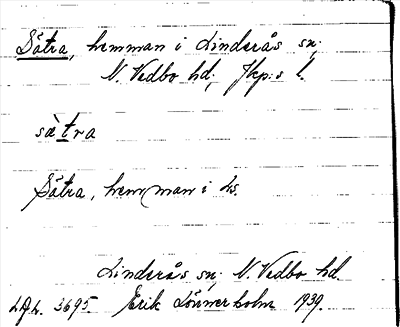 Sätra, hemman i Linderås sn;
N. Vedbo hd; Jkp:s l.
sàtra
Sätra, hem(man i Ls.
Linderås sn; N. Vedbo hd.
3695. Erik Lönnerholm 1939.